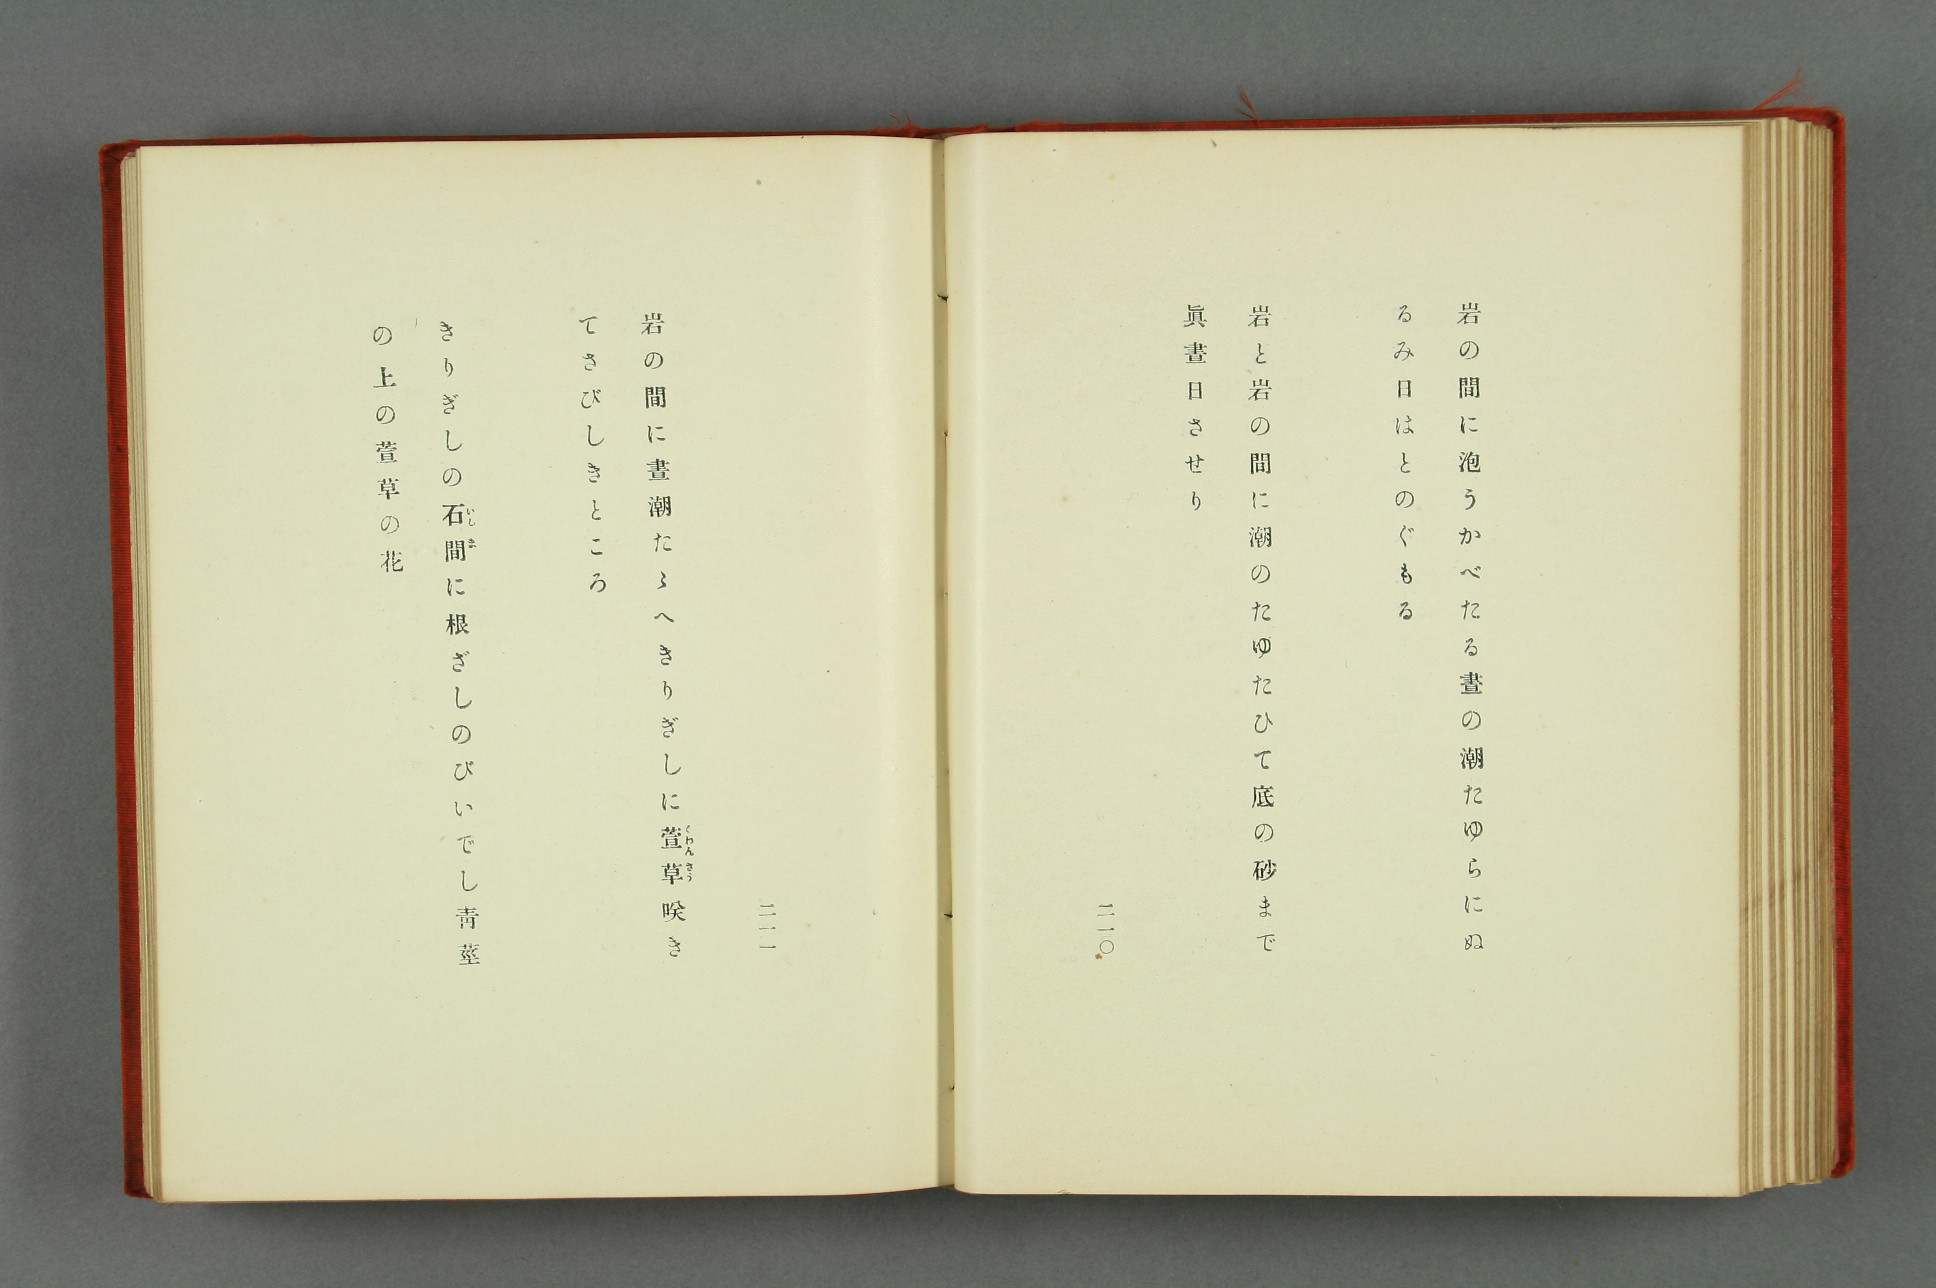 岩の間に泡うかべたる晝の潮たゆらにぬ
るみ日はとのぐもる
岩と岩の間に潮のたゆたひて底の砂まで
眞晝日させり
二一〇
岩の間に晝潮たゝへきりぎしに萱草咲き
くわんさう
てさびしきところ
きりぎしの石間に根ざしのびいでし靑莖
いしま
の上の萱草の花
二一一